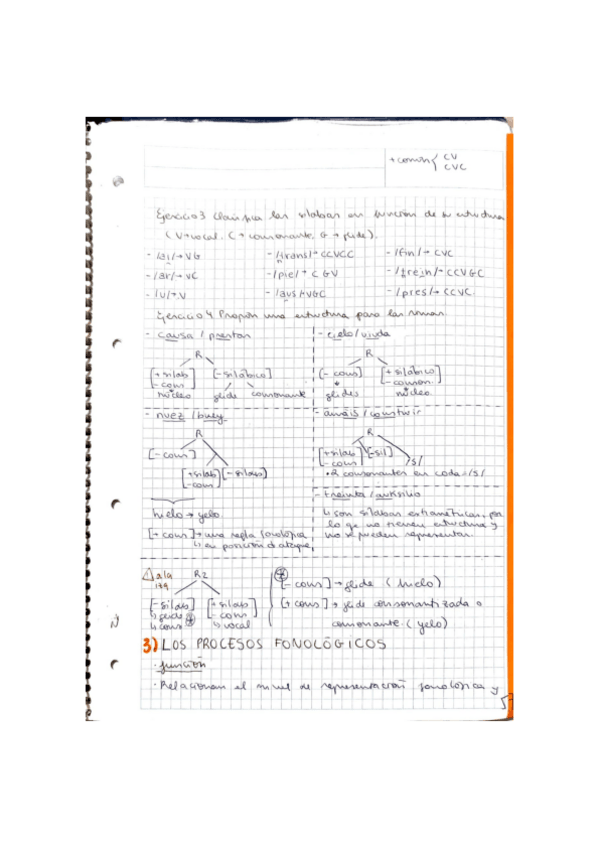 + común { CV
CVC
Ejercicio 3 Clasifica las sílabas en función de su estructura
(V→vocal, C→ consonante, G → glide).
- /ai/→ VG - /trans/→ CCVCC - /fin/→ CVC
- /ar/→ VC - /pie/→ CGV - /trein/→ CCVGC
- /u/→V - /aus/→VGC - /pres/→ CCVC.
Ejercicio 4 Propón una estructura para las rimas.
- causa / prestar - cielo / viuda
R R
[+ silab - cons] [- silábico] [- cons] [+ silábico - conson.]
núcleo glide consonante glides núcleo.
- nuez / buey - amáis / construir
R R
[- cons] [+silab - cons] [-sil] /s/
[+silab -cons] [-silabs] • 2 consonantes en coda → /s/
- treinta / auxilio
hielo → yelo. ↳ son sílabas extramétricas, por
[+ cons] → una regla fonológica lo que no tienen estructura y
↳ en posición d ataque, no se pueden representar.
⚠ a la izq R2 [- cons] → glide (hielo)
[- silabs] [+ silabs - cons] [+ cons] → glide consonantizada o
↳ glide ↳ vocal consonante. (yelo)
↳ cons
3) LOS PROCESOS FONOLÓGICOS
· función
· Relacionan el nivel de representación fonológica y